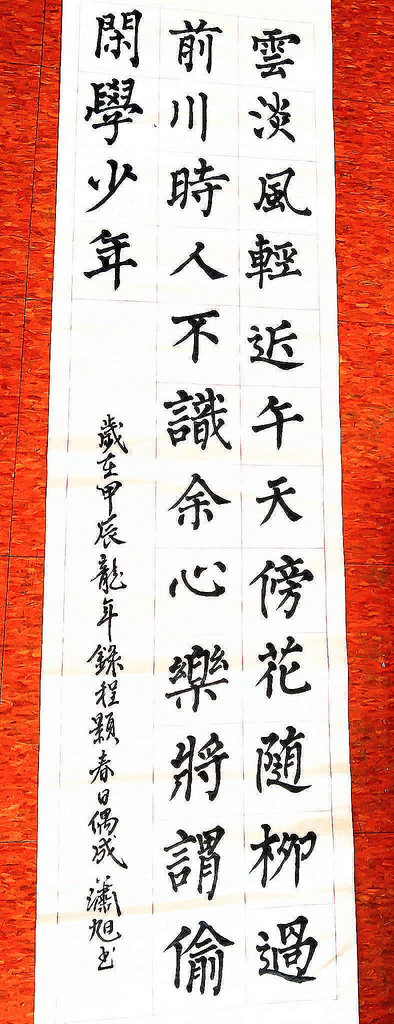 雲淡風輕近午天傍花随柳過
前川時人不識余心樂將謂偷
閑學少年
歲在甲辰龍年錄程顥春日偶成 瀟旭书